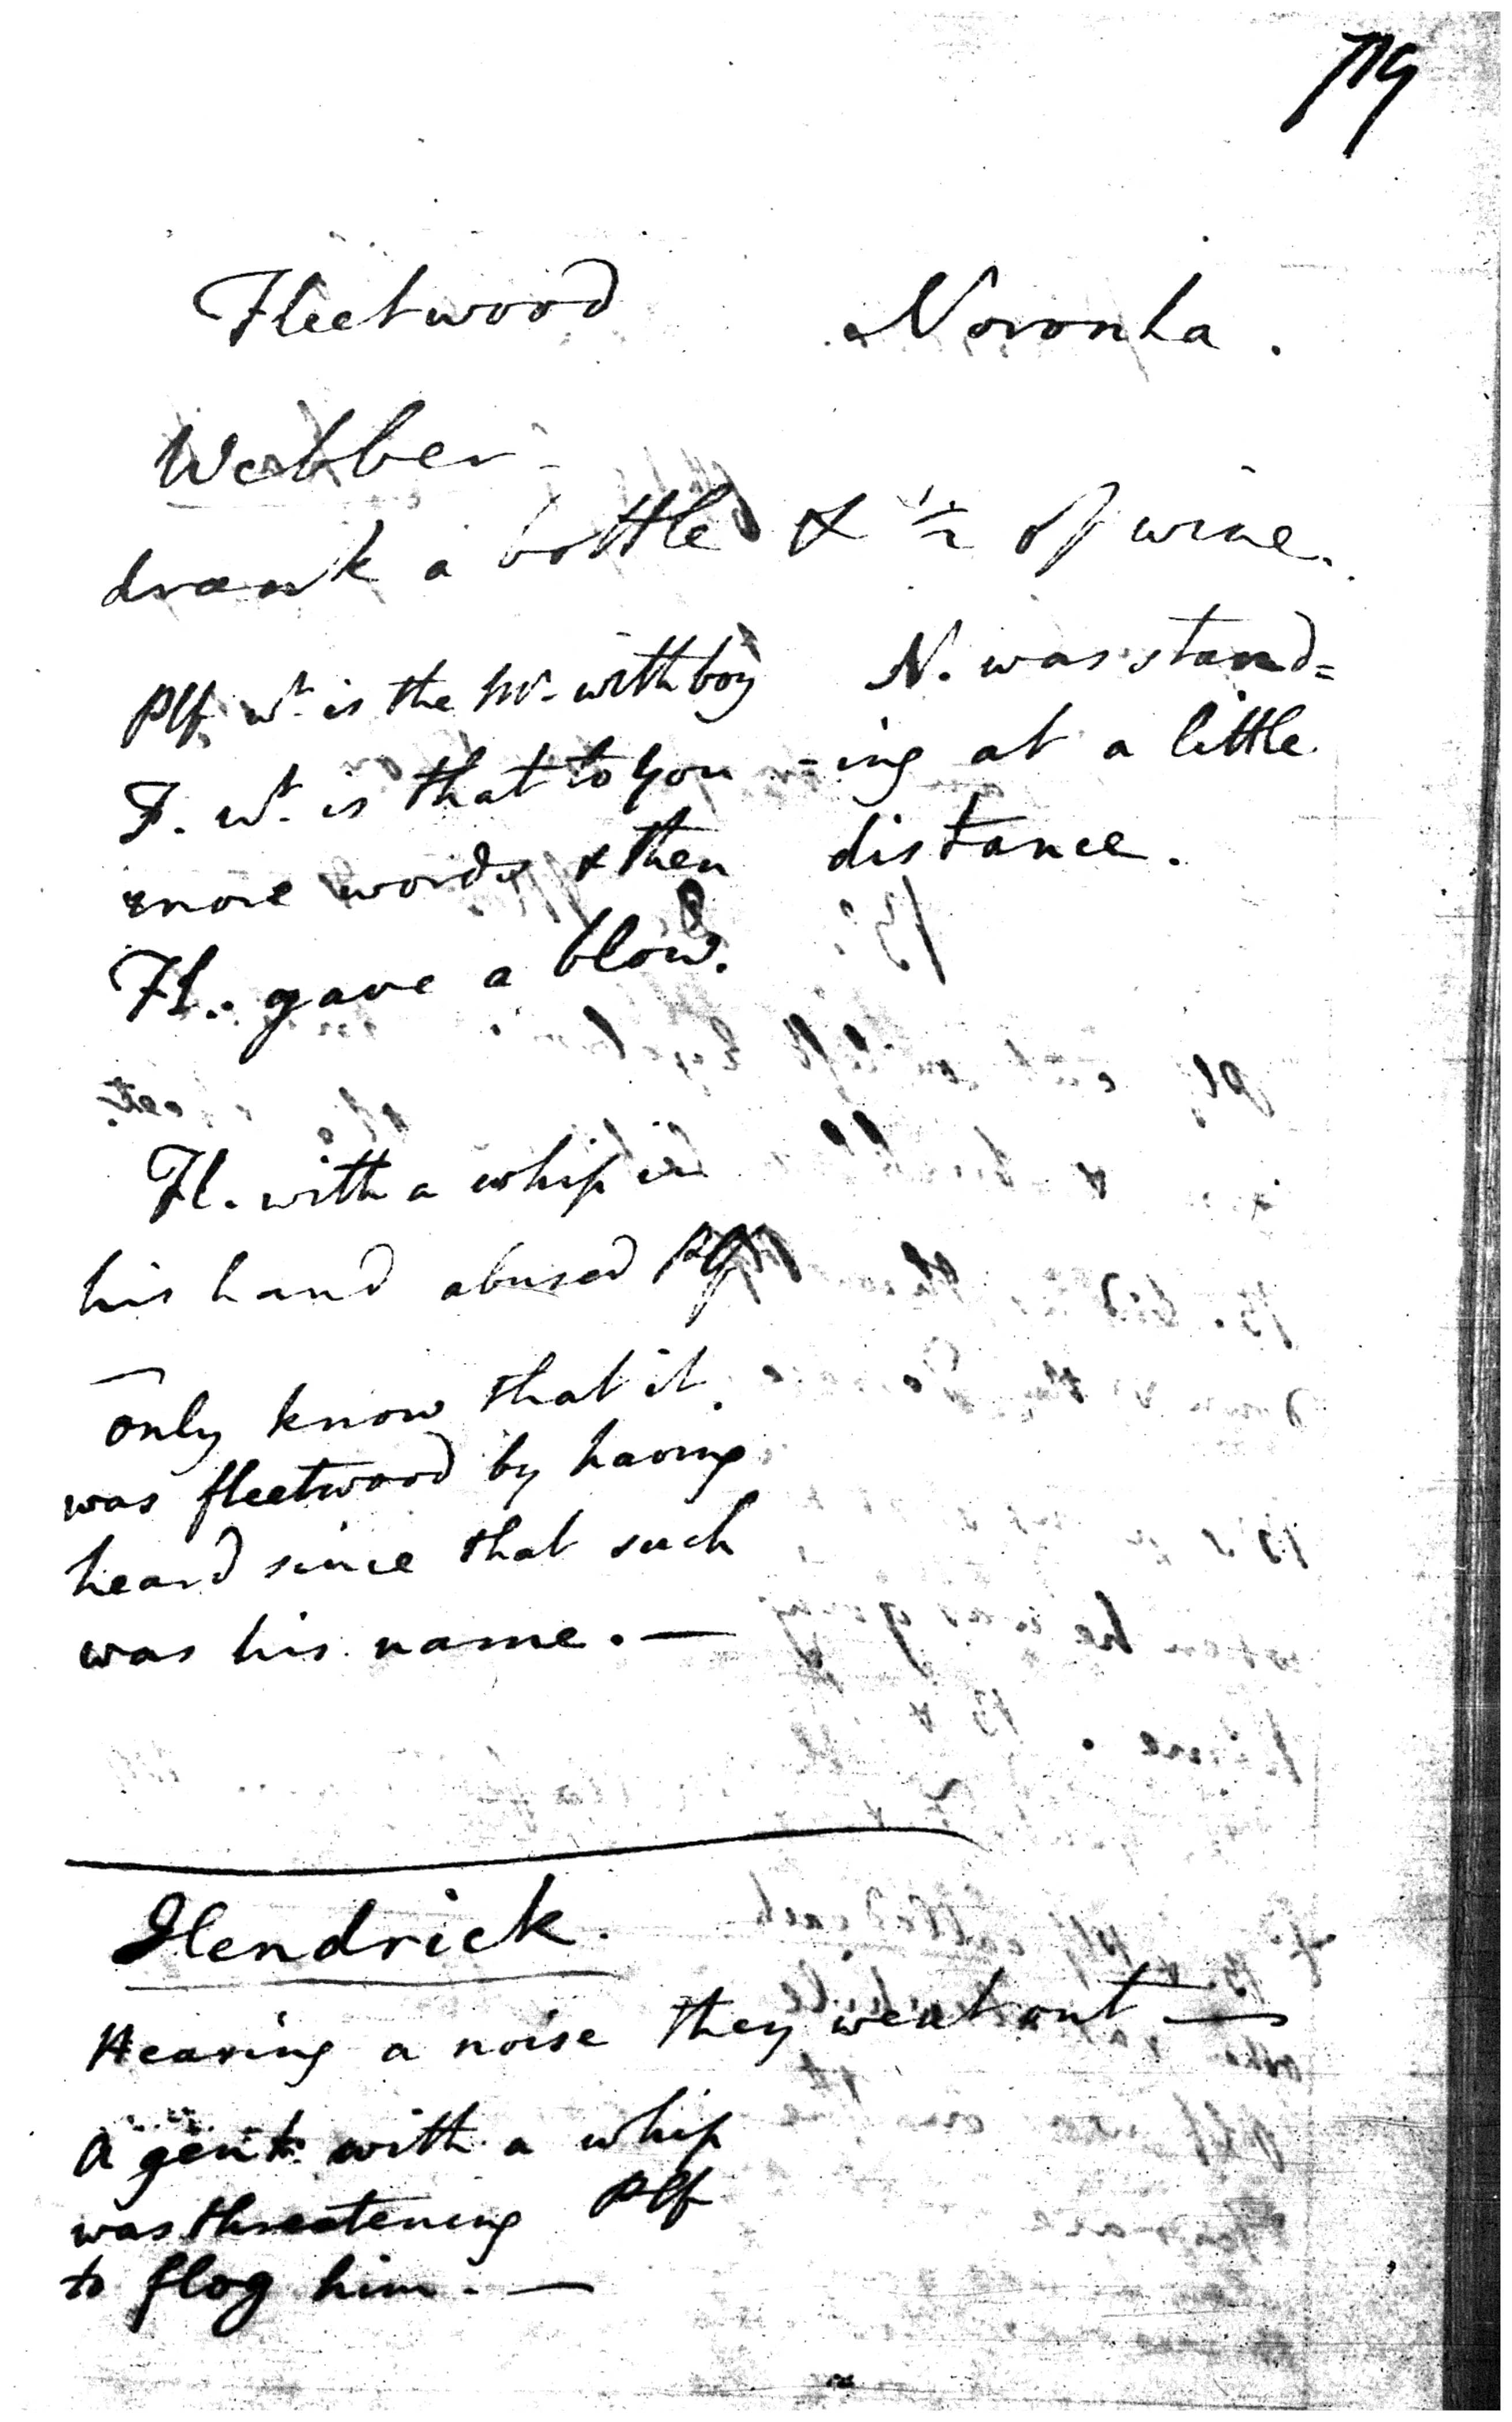 119
Fleetwood Noronha.
Webber -
drank a bottle & 1/2 of wine.
Plf. wt. is the mr. with boy
F. wt. is that to you
more words & then
Fl. gave a blow.
N. was stand=
-ing at a little
distance.
Fl. with a whip in
his hand abused Plf
only know that it
was fleetwood by having
heard since that such
was his name. —
Hendrick.
Hearing a noise they went out —
A gent. with a whip
was threatening Plf
to flog him. —